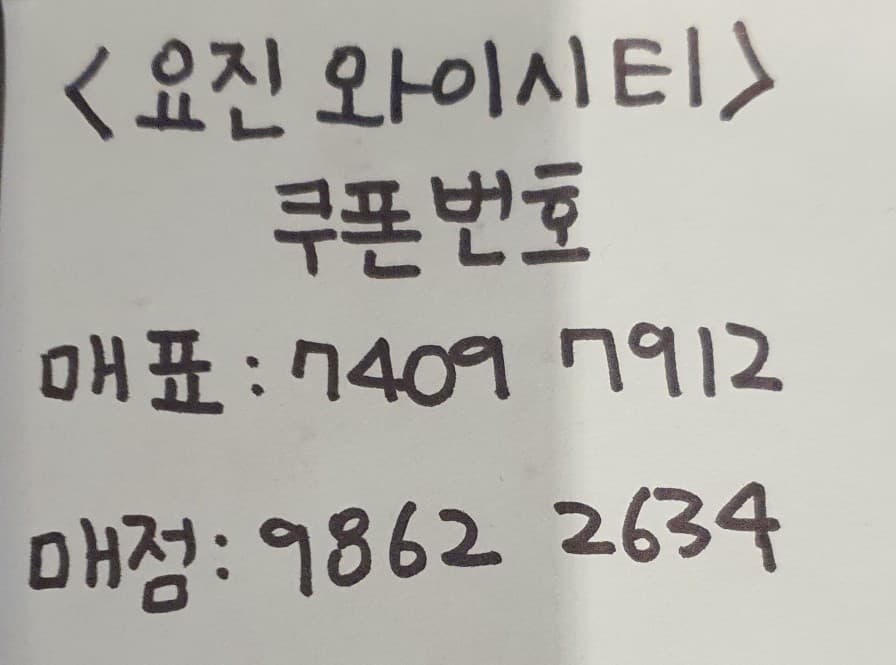 <요진 와이시티>
쿠폰번호
매표: 7409 7912
매점: 9862 2634